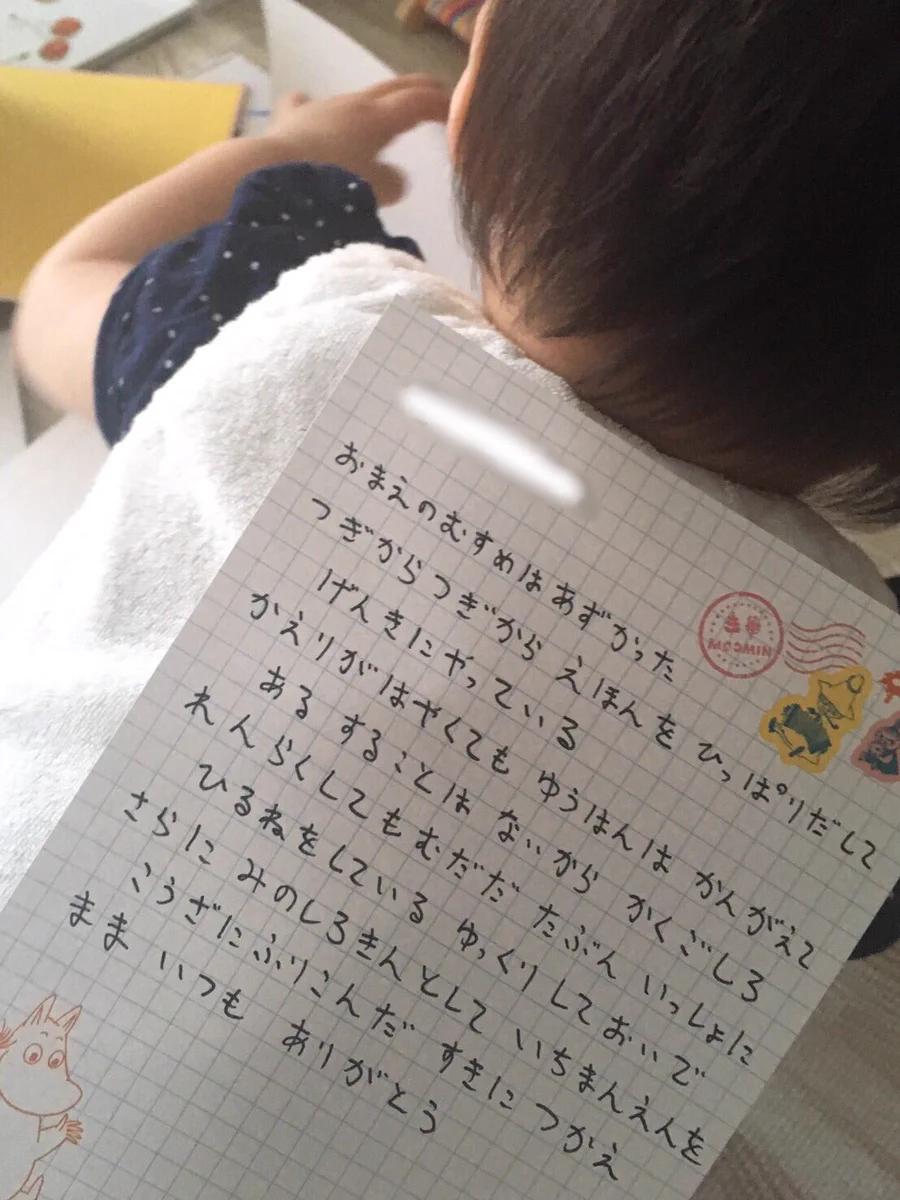 おまえのむすめはあずかった
つぎからつぎから えほんを ひっぱりだして
げんきにやっている
かえりがはやくても ゆうはんは かんがえて
ある することは ないから かくごしろ
れんらくしてもむだだ たぶん いっしょに
ひるねをしている ゆっくりしておいで
さらに みのしろきんとして いちまんえんを
こうざにふりこんだ すきに つかえ
まま いつも ありがとう